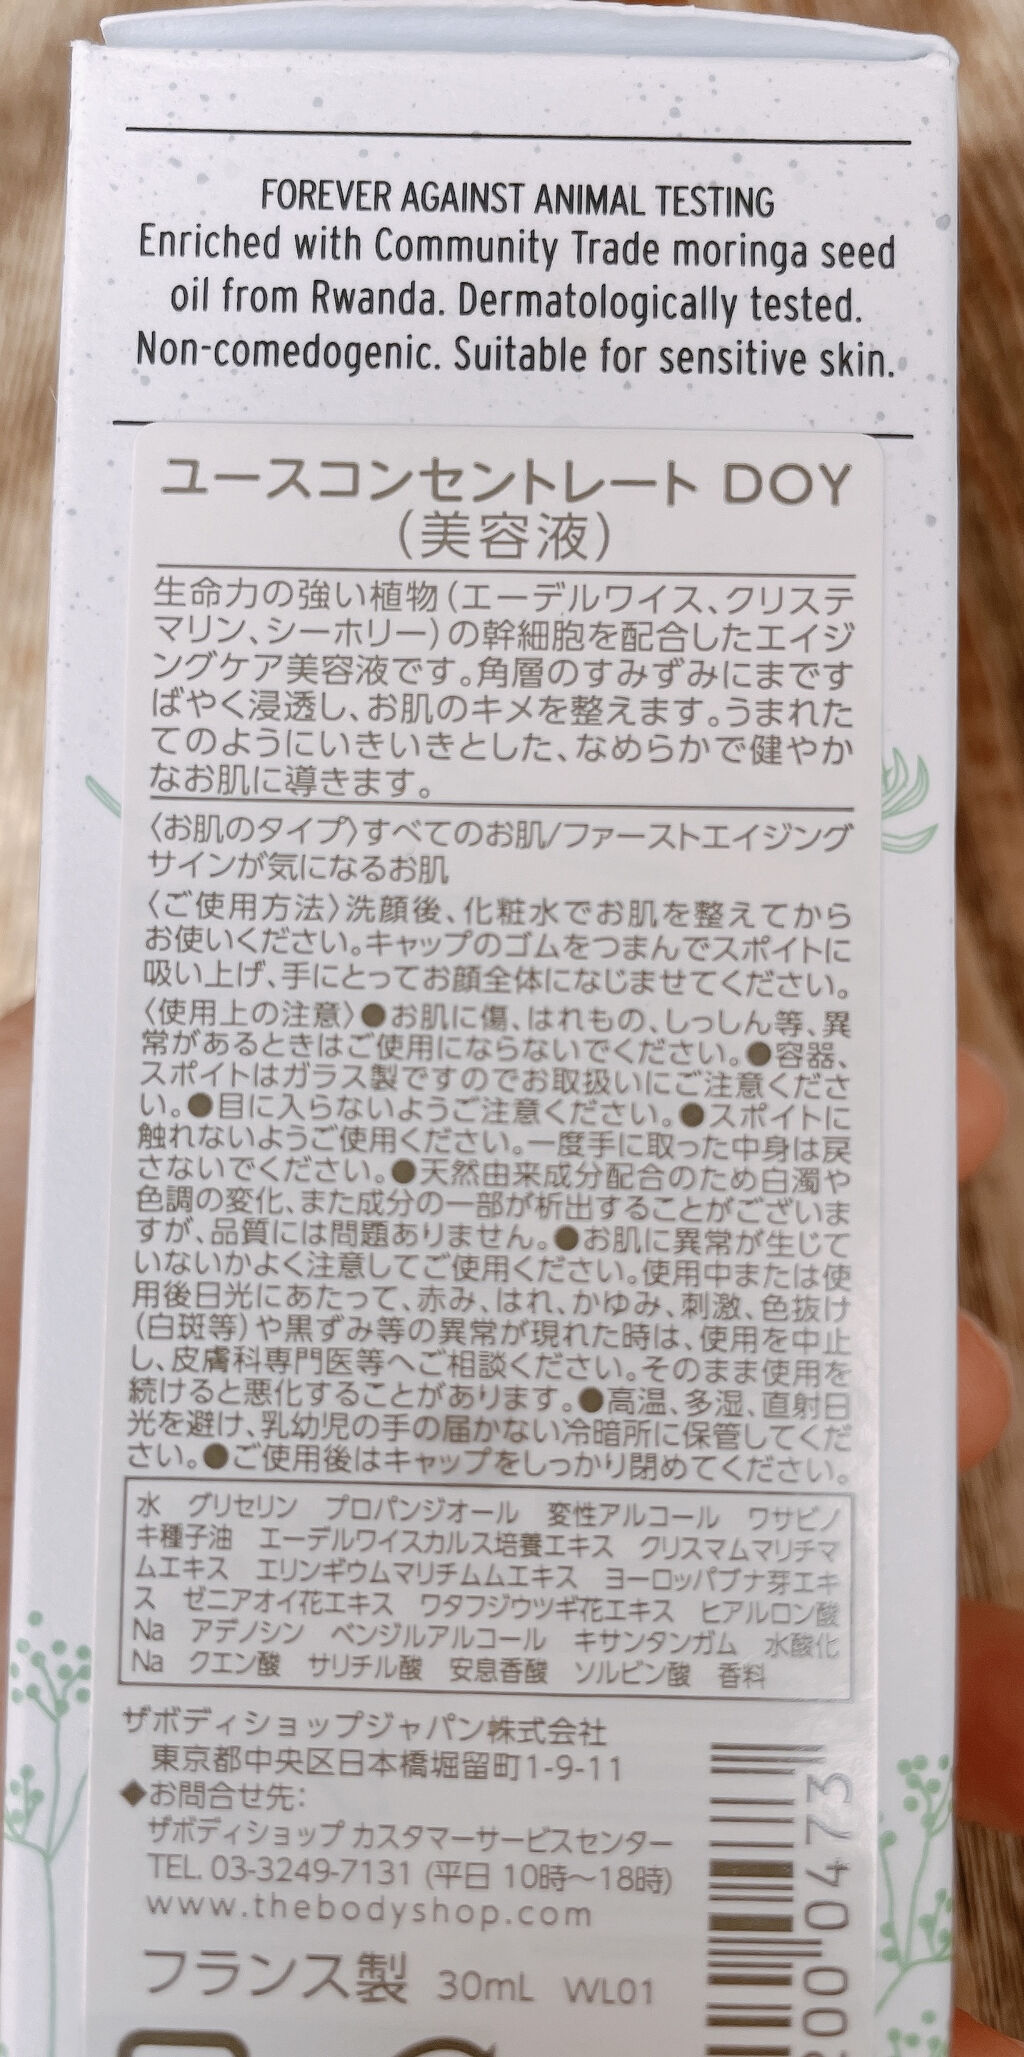 FOREVER AGAINST ANIMAL TESTING
Enriched with Community Trade moringa seed
oil from Rwanda. Dermatologically tested.
Non-comedogenic. Suitable for sensitive skin.
ユースコンセントレート DOY
(美容液)
生命力の強い植物(エーデルワイス、クリステ
マリン、シーホリー)の幹細胞を配合したエイジ
ングケア美容液です。角層のすみずみにまです
ばやく浸透し、お肌のキメを整えます。うまれた
てのようにいきいきとした、なめらかで健やか
なお肌に導きます。
〈お肌のタイプ〉すべてのお肌/ファーストエイジング
サインが気になるお肌
〈ご使用方法〉洗顔後、化粧水でお肌を整えてから
お使いください。キャップのゴムをつまんでスポイトに
吸い上げ、手にとってお顔全体になじませてください。
〈使用上の注意〉●お肌に傷、はれもの、しっしん等、異
常があるときはご使用にならないでください。●容器、
スポイトはガラス製ですのでお取扱いにご注意くださ
い。●目に入らないようご注意ください。●スポイトに
触れないようご使用ください。一度手に取った中身は戻
さないでください。●天然由来成分配合のため白濁や
色調の変化、また成分の一部が析出することがございま
すが、品質には問題ありません。●お肌に異常が生じて
いないかよく注意してご使用ください。使用中または使
用後日光にあたって、赤み、はれ、かゆみ、刺激、色抜け
(白斑等)や黒ずみ等の異常が現れた時は、使用を中止
し、皮膚科専門医等へご相談ください。そのまま使用を
続けると悪化することがあります。●高温、多湿、直射日
光を避け、乳幼児の手の届かない冷暗所に保管してくだ
さい。●ご使用後はキャップをしっかり閉めてください。
水 グリセリン プロパンジオール 変性アルコール ワサビノ
キ種子油 エーデルワイスカルス培養エキス クリスマムマリチマ
ムエキス エリンギウムマリチムムエキス ヨーロッパブナ芽エキ
ス ゼニアオイ花エキス ワタフジウツギ花エキス ヒアルロン酸
Na アデノシン ベンジルアルコール キサンタンガム 水酸化
Na クエン酸 サリチル酸 安息香酸 ソルビン酸 香料
ザボディショップジャパン株式会社
東京都中央区日本橋堀留町1-9-11
◆お問合せ先:
ザボディショップ カスタマーサービスセンター
TEL. 03-3249-7131 (平日 10時〜18時)
www.thebodyshop.com
フランス製 30mL WL01